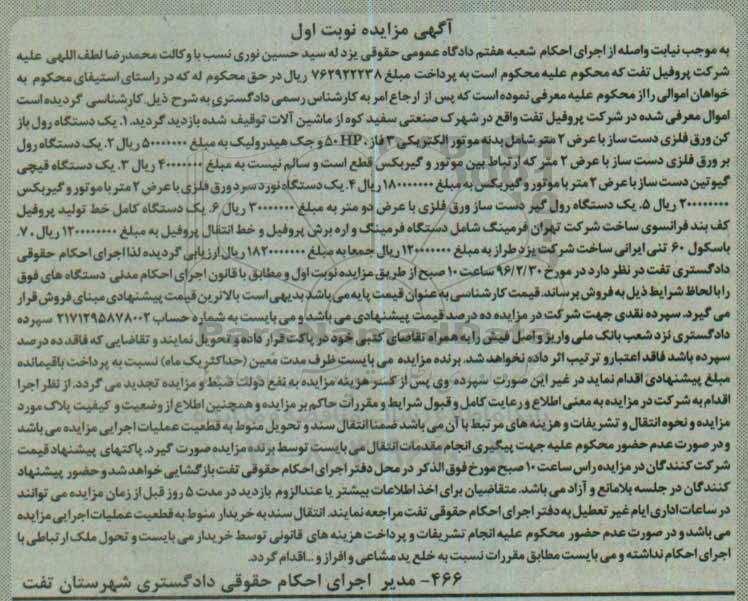 آگهی مزایده نوبت اول
به موجب نیابت واصله از اجرای احکام شعبه هفتم دادگاه عمومی حقوقی یزد له سید حسین نوری نسب با وکالت محمدرضا لطف اللهی علیه
شرکت پروفیل تفت که محکوم علیه محکوم است به پرداخت مبلغ ۷۶۲۹۲۲۲۳۸ ریال در حق محکوم له که در راستای استیفای محکوم به
خواهان اموالی را از محکوم علیه معرفی نموده است که پس از ارجاع امر به کارشناس رسمی دادگستری به شرح ذیل کارشناسی گردیده است
اموال معرفی شده در شرکت پروفیل تفت واقع در شهرک صنعتی سفید کوه از ماشین آلات توقیف شده بازدید گردید. ۱. یک دستگاه رول باز
کن ورق فلزی دست ساز با عرض ۲ متر شامل بدنه موتور الکتریکی ۳ فاز ۵۰HP و جک هیدرولیک به مبلغ ۵۰۰۰۰۰۰۰ ریال ۲. یک دستگاه رول
بر ورق فلزی دست ساز با عرض ۲ متر که ارتباط بین موتور و گیربکس قطع است و سالم نیست به مبلغ ۴۰۰۰۰۰۰۰ ریال ۳. یک دستگاه قیچی
گیوتین دست ساز با عرض ۲ متر با موتور و گیربکس به مبلغ ۱۸۰۰۰۰۰۰۰ ریال ۴. یک دستگاه نورد سرد ورق فلزی با عرض ۲ متر با موتور و گیربکس
۲۰۰۰۰۰۰۰۰ ریال ۵. یک دستگاه رول گیر دست ساز ورق فلزی با عرض دو متر به مبلغ ۳۰۰۰۰۰۰۰ ریال ۶. یک دستگاه کامل خط تولید پروفیل
کف بند فرانسوی ساخت شرکت تهران فرمینگ شامل دستگاه فرمینگ و اره برش پروفیل و خط انتقال پروفیل به مبلغ ۱۲۰۰۰۰۰۰۰۰ ریال ۷.
باسکول ۶۰ تنی ایرانی ساخت شرکت یزد طراز به مبلغ ۱۲۰۰۰۰۰۰۰ ریال جمعا به مبلغ ۱۸۲۰۰۰۰۰۰۰ ریال ارزیابی گردیده لذا اجرای احکام حقوقی
دادگستری تفت در نظر دارد در مورخ ۹۶/۲/۳۰ ساعت ۱۰ صبح از طریق مزایده نوبت اول و مطابق با قانون اجرای احکام مدنی دستگاه های فوق
را با لحاظ شرایط ذیل به فروش برساند. قیمت کارشناسی به عنوان قیمت پایه می باشد بدیهی است بالاترین قیمت پیشنهادی مبنای فروش قرار
می گیرد. سپرده نقدی جهت شرکت در مزایده ده درصد قیمت پیشنهادی می باشد و می بایست به شماره حساب ۲۱۷۱۲۹۵۸۷۸۰۰۲ سپرده
دادگستری نزد شعب بانک ملی واریز و اصل فیش را به همراه تقاضای کتبی خود در پاکت قرار داده و تحویل نمایند و تقاضایی که فاقد ده درصد
سپرده باشد فاقد اعتبار و ترتیب اثر داده نخواهد شد. برنده مزایده می بایست ظرف مدت معین (حداکثر یک ماه) نسبت به پرداخت باقیمانده
مبلغ پیشنهادی اقدام نماید در غیر این صورت سپرده وی پس از کسر هزینه مزایده به نفع دولت ضبط و مزایده تجدید می گردد. از نظر اجرا
اقدام به شرکت در مزایده به معنی اطلاع و رعایت کامل و قبول شرایط و مقررات حاکم بر مزایده و همچنین اطلاع از وضعیت و کیفیت پلاک مورد
مزایده و نحوه انتقال و تشریفات و هزینه های مرتبط با آن می باشد ضمنا انتقال سند و تحویل منوط به قطعیت عملیات اجرایی مزایده می باشد
و در صورت عدم حضور محکوم علیه جهت پیگیری انجام مقدمات انتقال می بایست توسط برنده مزایده صورت گیرد. پاکتهای پیشنهاد قیمت
شرکت کنندگان در مزایده راس ساعت ۱۰ صبح مورخ فوق الذکر در محل دفتر اجرای احکام حقوقی تفت بازگشایی خواهد شد و حضور پیشنهاد
کنندگان در جلسه بلامانع و آزاد می باشد. متقاضیان برای اخذ اطلاعات بیشتر یا عندالزوم بازدید در مدت ۵ روز قبل از زمان مزایده می توانند
در ساعات اداری ایام غیر تعطیل به دفتر اجرای احکام حقوقی تفت مراجعه نمایند. انتقال سند به خریدار منوط به قطعیت عملیات اجرایی مزایده
می باشد و در صورت عدم حضور محکوم علیه انجام تشریفات و پرداخت هزینه های قانونی توسط خریدار می بایست و تحول ملک ارتباطی با
اجرای احکام نداشته و می بایست مطابق مقررات نسبت به خلع ید مشاعی و افراز و ... اقدام گردد.
۴۶۶- مدیر اجرای احکام حقوقی دادگستری شهرستان تفت